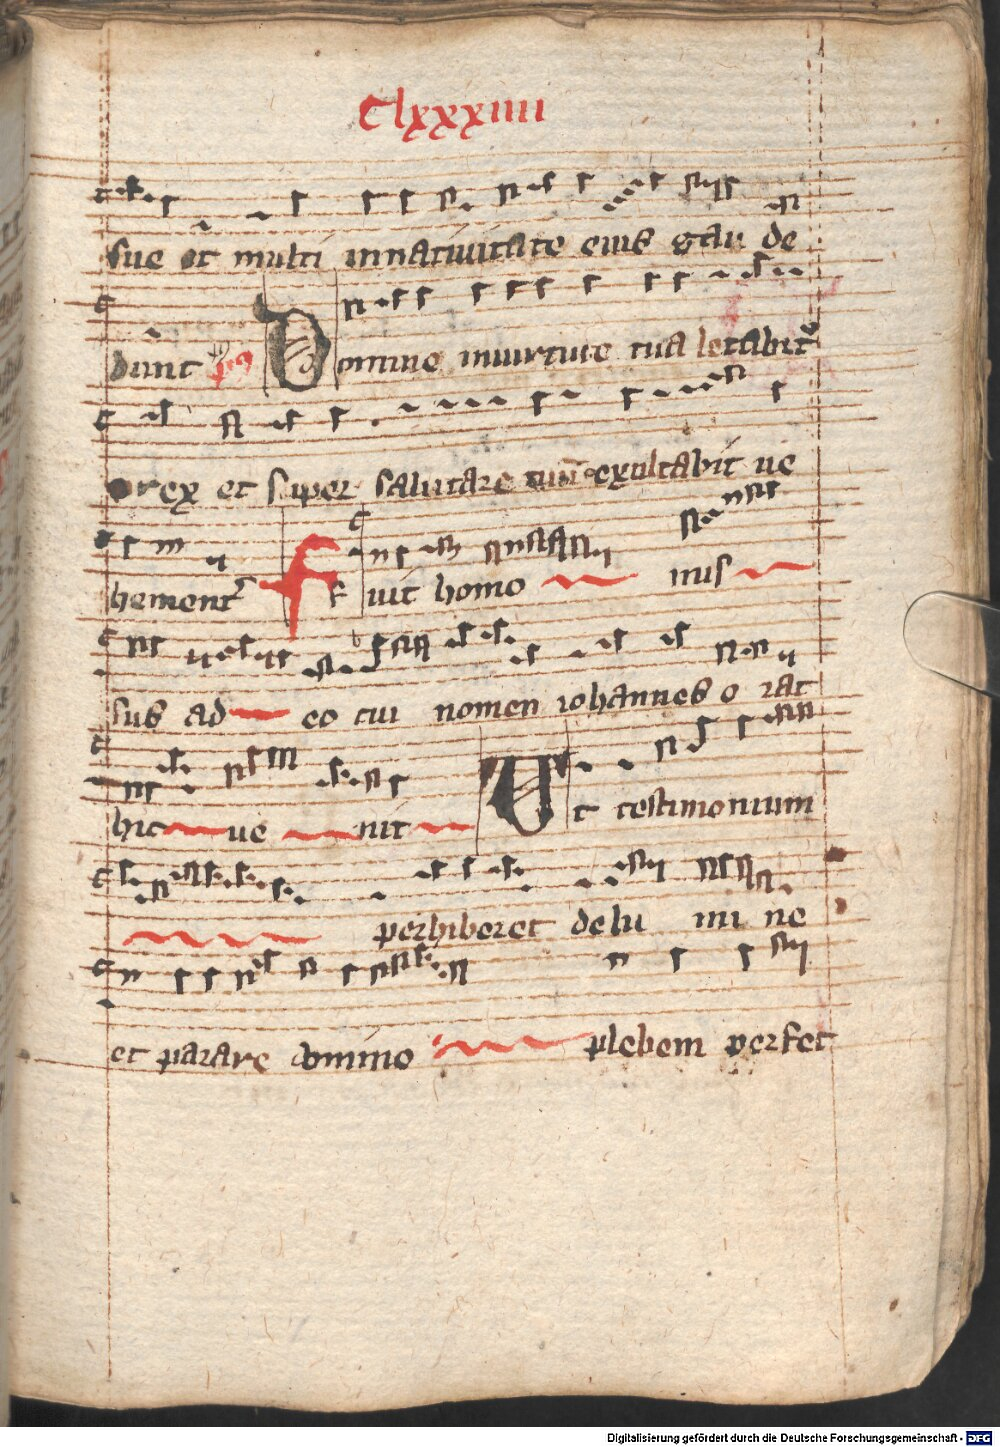 Clxxxiiii
sue et multi in nativitate eius gau de
bunt ps Domine in virtute tua letabitr
rex et super salutare tuū exultabit ve
hement Fuit homo mis
sus ad eo cui nomen iohannes o rat
hic ve nit Ut testimonium
perhiberet de lu mi ne
et parare domino plebem perfet
Digitalisierung gefördert durch die Deutsche Forschungsgemeinschaft - DFG